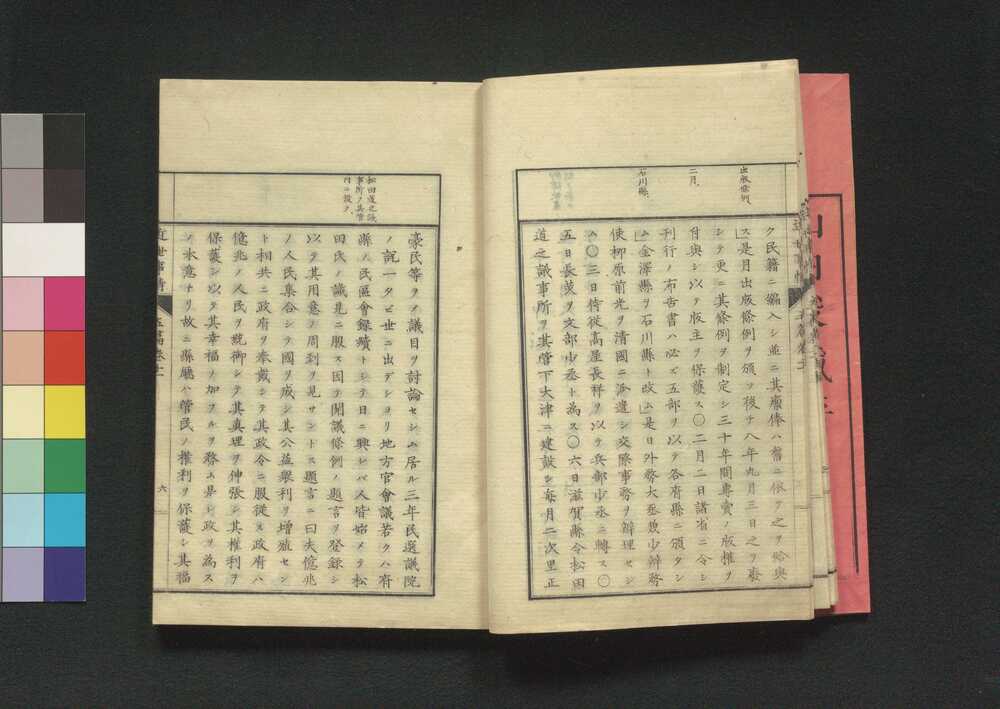 出版條例、
ク民籍ニ編入シ並ニ其廩俸ハ舊ニ依テ之ヲ給與
ス」是月出版條例ヲ頒ツ後チ八年九月三日之ヲ廢
シテ更ニ其條例ヲ制定シ三十年間專賣ノ版權ヲ
二月、
付與シ以テ版主ヲ保護ス〇二月二日諸省ニ令シ
刊行ノ布告書ハ必ズ五部ヲ以テ各府縣ニ頒タシ
石川縣、
ム金澤縣ヲ石川縣ト改ム」是日外務大丞兼少辨務
使柳原前光ヲ清國ニ派遣シ交際事務ヲ辨理セシ
ム〇三日侍從高屋長祥ヲ以テ兵部少丞ニ轉ス〇
五日長炗ヲ文部少丞ト為ス〇六日滋賀縣令松田
道之議事所ヲ其管下大津ニ建設シ每月二次里正
松田道之議
事所ヲ其管
内ニ設ク、
豪民等ヲノ議目ヲ討論セシム居ル三年民選議院
ノ説一タビ世ニ出デシヨリ地方官會議若クハ府
縣ノ民區會録續トシテ日ニ興レバ人皆始メテ松
田氏ノ識見ニ服ス因テ開議條例ノ題言ヲ登録シ
以テ其用意ノ周到ヲ見サントス題言ニ曰夫億兆
ノ人民集合シテ國ヲ成シ其公益衆利ヲ增殖セン
ト相共ニ政府ヲ奉戴シテ其政令ニ服從ス政府ハ
億兆ノ人民ヲ統御シテ其真理ヲ伸張シ其權利ヲ
保護シ以テ其幸福ヲ加フルヲ務ム是レ政ヲ為ス
ノ本意ナリ故ニ縣廳ハ管民ノ權利ヲ保護シ其福
近世事情 五篇卷十一
六